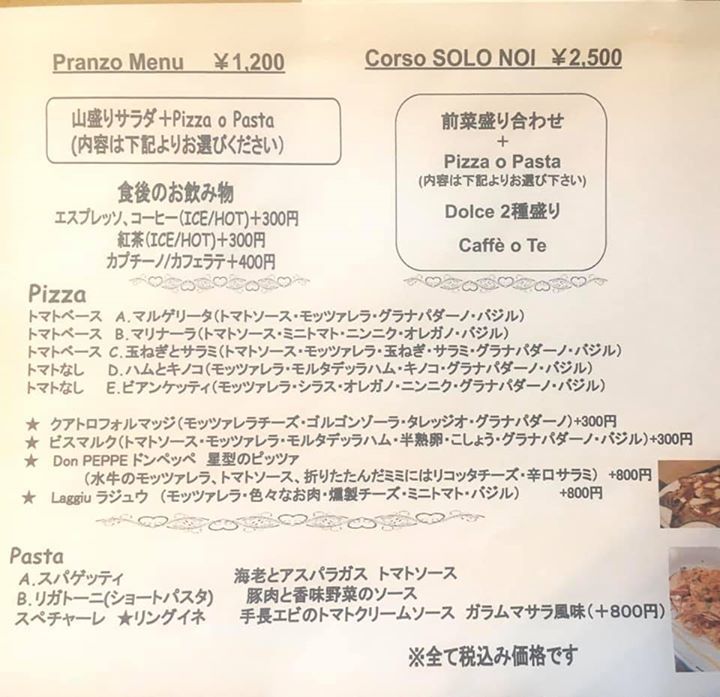 Pranzo Menu ￥1,200
山盛りサラダ+Pizza o Pasta
(内容は下記よりお選びください)
食後のお飲み物
エスプレッソ、コーヒー(ICE/HOT)+300円
紅茶(ICE/HOT)+300円
カプチーノ/カフェラテ+400円
Corso SOLO NOI ￥2,500
前菜盛り合わせ
+
Pizza o Pasta
(内容は下記よりお選び下さい)
Dolce 2種盛り
Caffè o Te
Pizza
トマトベース A.マルゲリータ(トマトソース・モッツァレラ・グラナパダーノ・バジル)
トマトベース B.マリナーラ(トマトソース・ミニトマト・ニンニク・オレガノ・バジル)
トマトベース C.玉ねぎとサラミ(トマトソース・モッツァレラ・玉ねぎ・サラミ・グラナパダーノ・バジル)
トマトなし D.ハムとキノコ(モッツァレラ・モルタデッラハム・キノコ・グラナパダーノ・バジル)
トマトなし E.ビアンケッティ(モッツァレラ・シラス・オレガノ・ニンニク・グラナパダーノ・バジル)
★ クアトロフォルマッジ(モッツァレラチーズ・ゴルゴンゾーラ・タレッジオ・グラナパダーノ)+300円
★ ビスマルク(トマトソース・モッツァレラ・モルタデッラハム・半熟卵・こしょう・グラナパダーノ・バジル)+300円
★ Don PEPPE ドンペッペ 星型のピッツァ
(水牛のモッツァレラ、トマトソース、折りたたんだミミにはリコッタチーズ・辛口サラミ) +800円
★ Laggiu ラジュウ (モッツァレラ・色々なお肉・燻製チーズ・ミニトマト・バジル) +800円
Pasta
A.スパゲッティ 海老とアスパラガス トマトソース
B.リガトーニ(ショートパスタ) 豚肉と香味野菜のソース
スペチャーレ ★リングイネ 手長エビのトマトクリームソース ガラムマサラ風味(+800円)
※全て税込み価格です